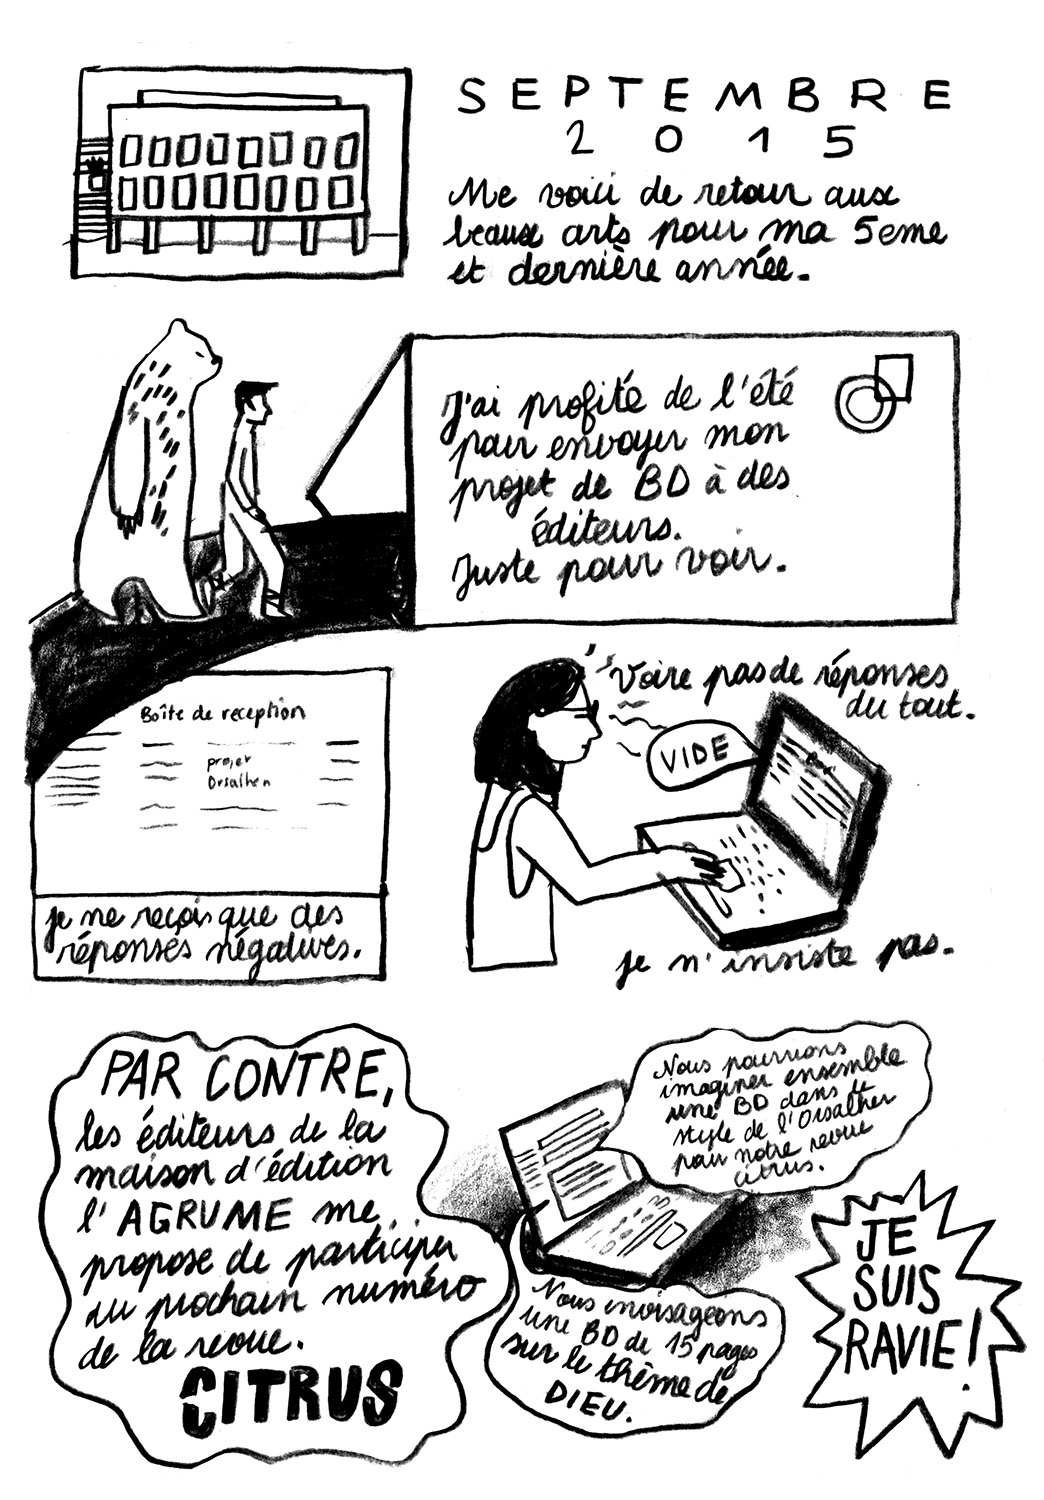 SEPTEMBRE
2015
Me voici de retour aux
beaux arts pour ma 5eme
et dernière année.
J'ai profité de l'été
pour envoyer mon
projet de BD à des
éditeurs.
Juste pour voir.
Boîte de reception
projet
Orsalhen
je ne reçois que des
réponses négatives.
Voire pas de réponses
du tout.
VIDE
je n'insiste pas.
PAR CONTRE,
les éditeurs de la
maison d'édition
l'AGRUME me
propose de participer
au prochain numéro
de la revue.
CITRUS
Nous pourrions
imaginer ensemble
une BD dans le
style de l'Orsalher
pour notre revue
citrus.
Nous envisageons
une BD de 15 pages
sur le thème de
DIEU.
JE
SUIS
RAVIE!